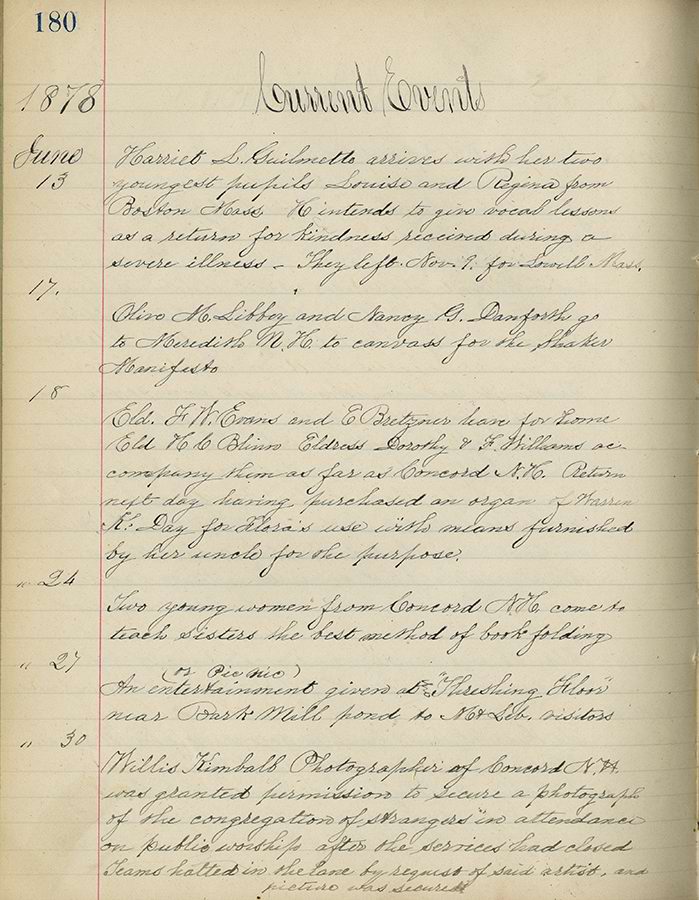 180
Current Events
1878
June
13
Harriet L. Guilmette arrives with her two
youngest pupils Louise and Regina from
Boston Mass. H intends to give vocal lessons
as a return for kindness received during a
severe illness - They left Nov. 9. for Lowell Mass.
17.
Olive M. Libbey and Nancy G. Danforth go
to Meredith N.H. to canvass for the Shaker
Manifesto
18
Eld. F W. Evans and E Bretzner leave for home
Eld H C Blinn Eldress Dorothy & F. Williams ac-
company them as far as Concord N.H. Return
next day having purchased an organ of Warren
K. Day for Flora's use with means furnished
by her uncle for the purpose.
" 24
Two young women from Concord N.H. come to
teach sisters the best method of book folding
" 27
(or Pic nic)
An entertainment given at the "Threshing Floor"
near Bark Mill pond to Mt Leb. visitors
" 30
Willis Kimball Photographer of Concord N.H.
was granted permission to secure a photograph
of the congregation of strangers in attendance
on public worship after the services had closed
Teams halted in the lane by request of said artist, and
picture was secured